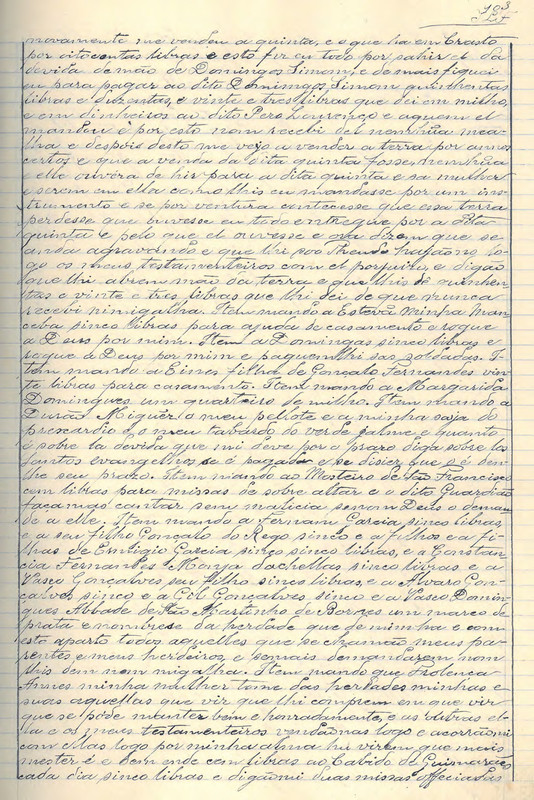 103
novamente me vendeu a quinta, e o que ha em Crasto
por oitocentas libras e esto fiz eu todo por sahir el da
devida de mão de Domingos Simom, e de mais fiquei
eu para pagar ao dito Domingos Simom quinhentas
libras e duzentas, e vinte e tres libras que dei em milho,
e em dinheiros ao dito Pero Lourenço e a quem el
mandou e por esto nom recebi del nemhũa mea-
lha e despois desto me vejo a vender a terra por annos
certos e que a venda da dita quinta fosse nemhũa
e elle ouvera de hir para a dita quinta e sa mulher
e serem em ella como lhis eu mandasse por um ins-
trumento e se por ventura contecesse que essa terra
perdesse que houvesse eu todo entregue por a dita
quinta e pelo que el ouvesse e ora dizem que se
anda agravando e que lhi som Theudo hajão no lo-
go os meus testamenteiros com el por juizo, e digão
que lhi abrem mão da terra e que lhis dê quinhen-
tas e vinte e tres libras que lhi dei de que nunca
recebi nimigalha. Item mando a Esteva minha man-
ceba sinco libras para ajuda de casamento e rogue
a Deus por mim. Item a Domingas sinco libras e
rogue a Deus por mim e paguem lhi sas soldadas. I-
tem mando a Eines filha de Gonçalo Fernandes vin-
te libras para casamento. Item mando a Margarida
Domingues um quarteiro de milho. Item mando a
Durão Miguez o meu pelote e a minha saja do
prescardio e o meu tabardo do verde salme e quanto
é sobre la devida que mi deve por o prazo diga sobre los
Santos evangelhos se é pagado e se disier que si é dem
lhe seu prazo. Item mando ao Mosteiro de São Francisco
cem libras para missas de sobre altar e o dito Guardião
faça mas cantar sem malicia senom Deus o deman-
de a elle. Item mando a Fernam Garcia sinco libras,
e a seu filho Gonçalo do Rego sinco e a filhos e a fi-
lhas de Emligio Garcia sinco sinco libras, e a Constan-
cia Fernandes Monja dachellas sinco libras e a
Vasco Gonçalves seu filho sinco libras, e a Alvaro Gon-
çalves sinco, e a Gil Gonçalves sinco e a Vasco Domin-
gues Abbade de São Martinho de Borves um marco de
prata e nombrese da herdade que de minha e com
esto aparto todos aquelles que se chamão meus pa-
rentes e meus herdeiros e se mais demandarem nom
lhis dem nem migalha. Item mando que Frolença
Annes minha mulher tome das herdades minhas e
suas aquellas que vir que lhi comprem em que vir
que se pode manter bem e honradamente, e as outras el-
la e os meus testamenteiros vendão nas logo e acorrão mi
com ellas logo por minha alma hu virem que mais
mester é e dem ende cem libras ao Cabido de Guimarães
cada dia sinco libras e digão mi duas missas officiadas